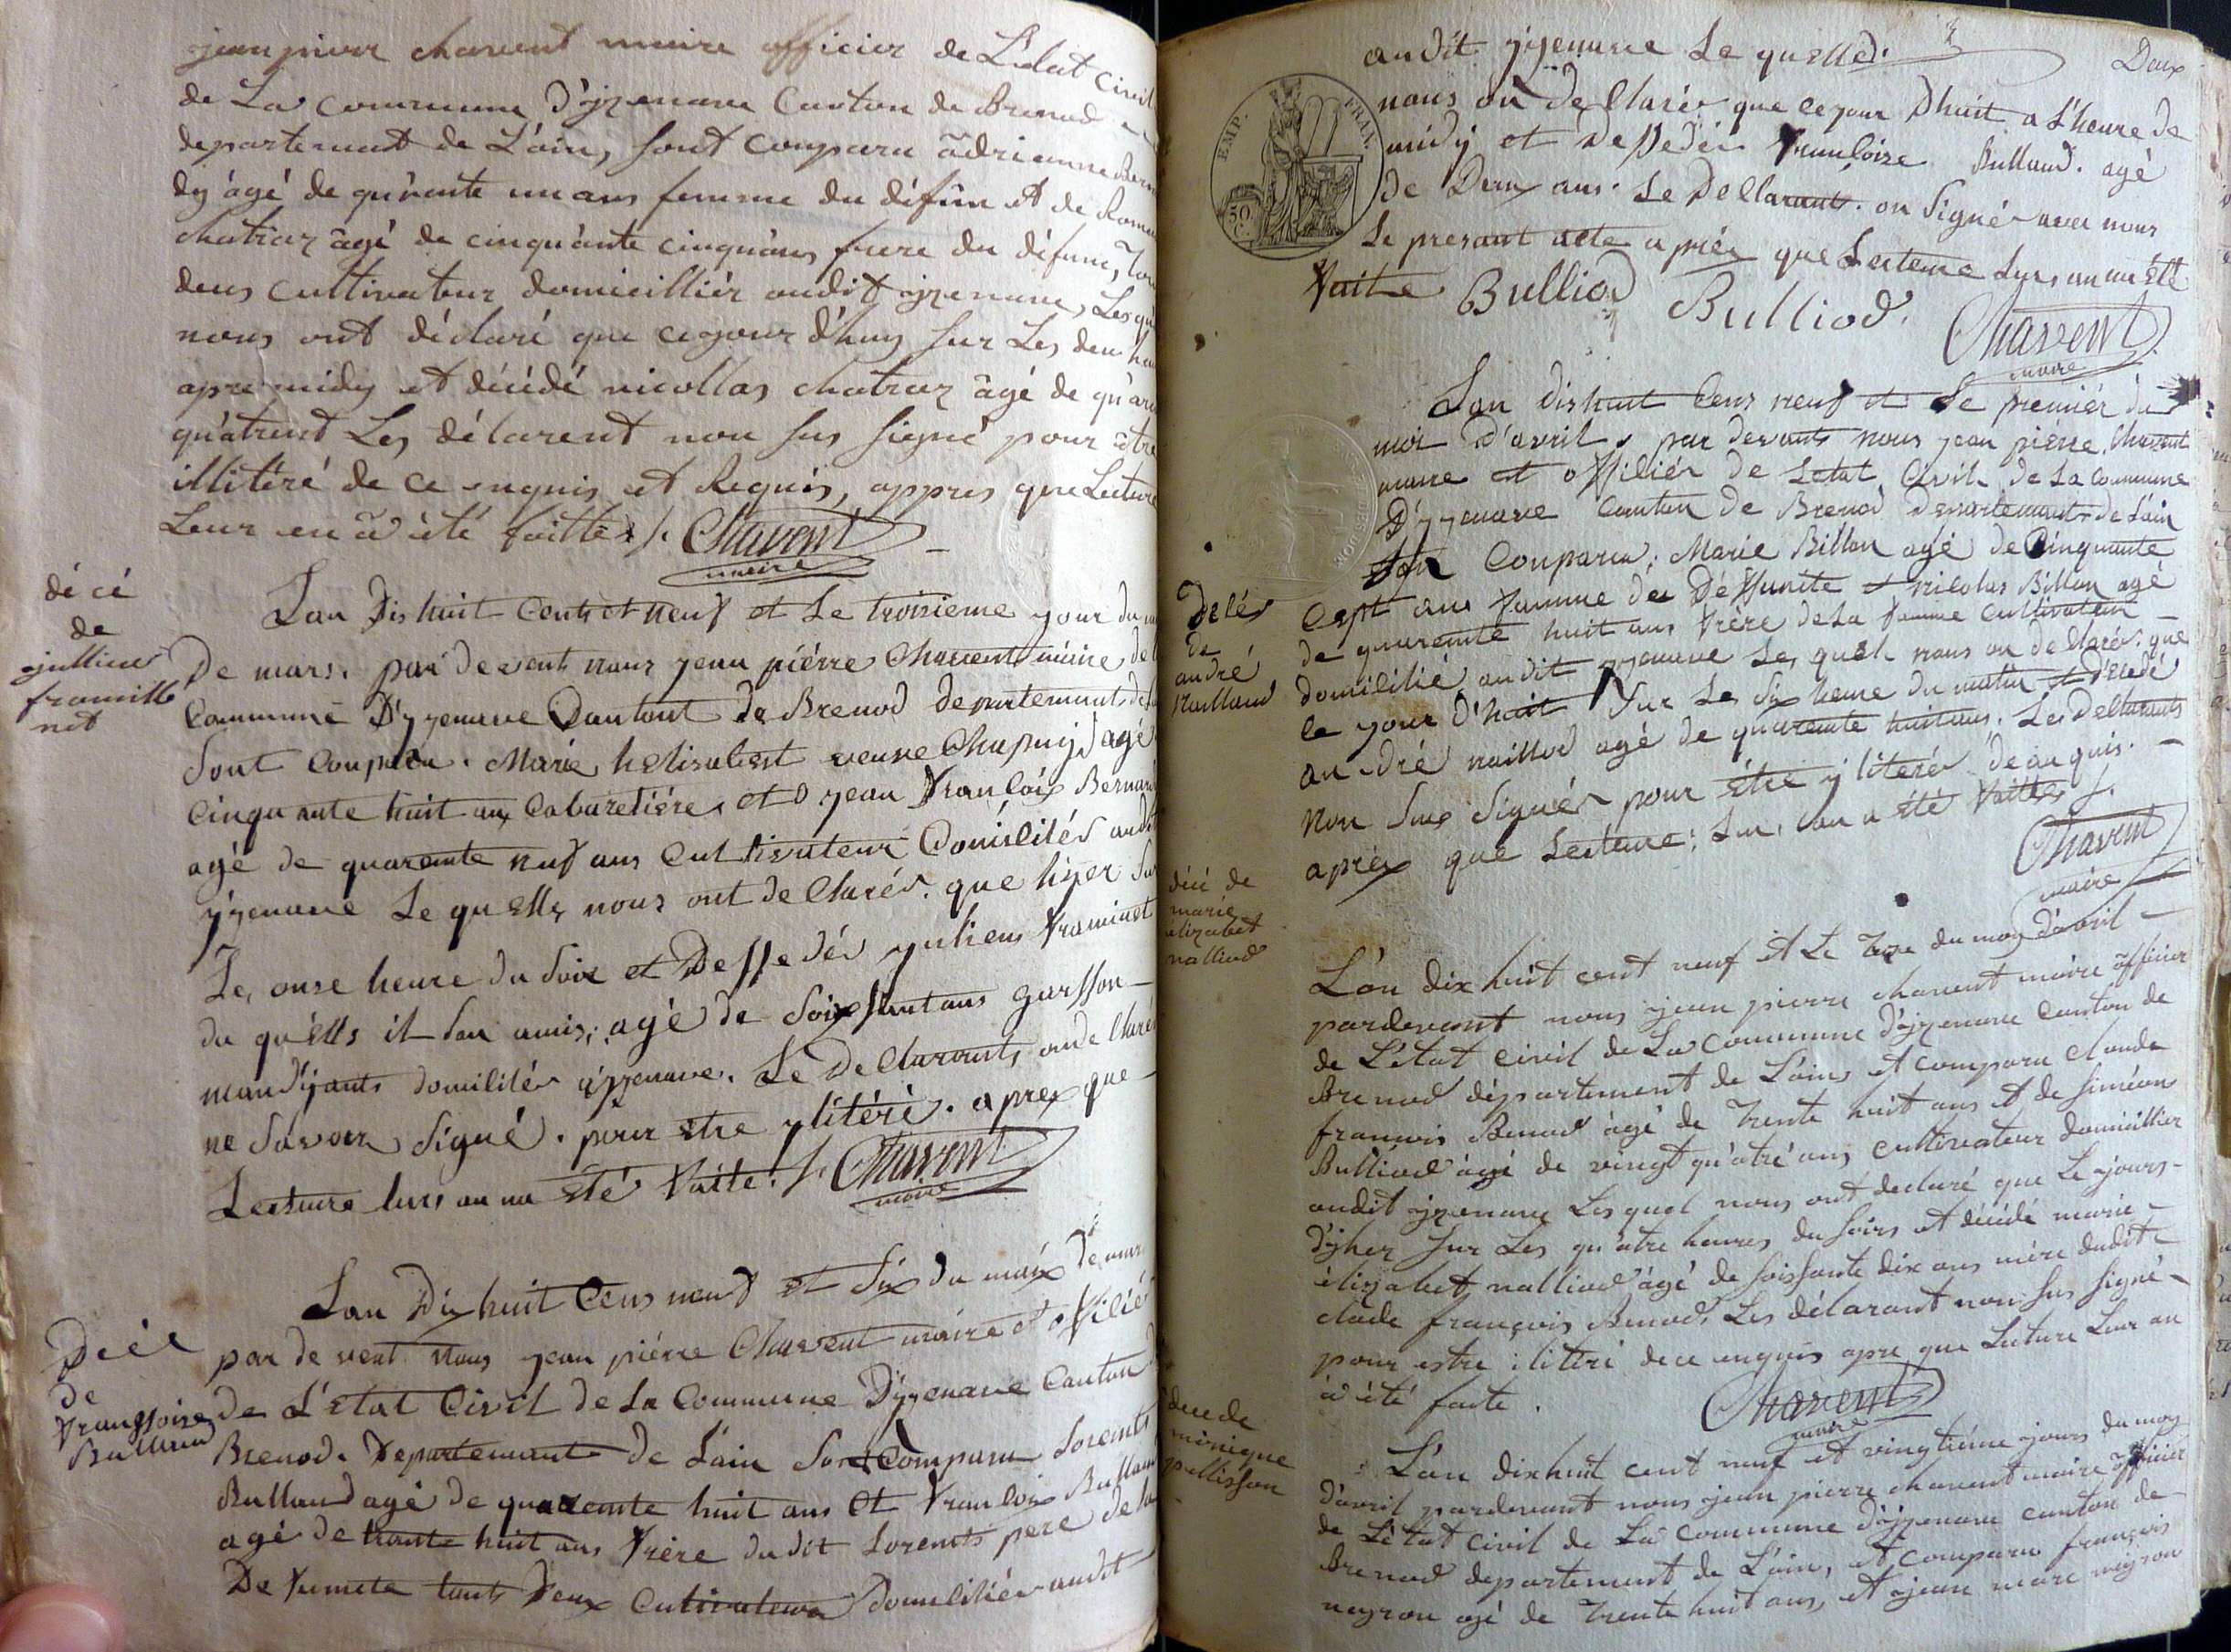 jean pierre chavent maire officier de L'etat civil
de La commune d'yzenave Canton de Brenod
departement de L'ain, sont comparu adrienne
dy âgé de qu'rante un ans femme du défun et de Roma
chatiaz âgé de cinqu'ante cinq'ans frere du défunt, Tou
deus cultivateur domicilliér audit yzenave, Lesqu
nous ont déclaré que ce jour d'huy sur Les deu
apre midy et décédé nicollas chatiaz âgé de qu'ara
qu'atrent Les délarent nou sus signé pour âtre
illitéré de ce enquis et Requis, appres que Lecture
Leur en a été faitte ./. Chavent
maire
déci
de
jullien
framille
net
Lan Dis huit Cents et neuf et Le troisieme your du
De mars. par devent nous yean piérre Chavent maire de
Commune D'yzenave Dantont de Brenod departement de
Sont Comparu. Marie helisabest veuve Chapuy agé
Cinquante huit ans Cabaretiére et yean François Bernard
agé de quarente neuf ans Cultivateur Domilités audit
yzenave Le quells nous ont de Claréz que hyer Sur
Le, onse heure du Soir et Desse déz yulien Framinet
du qu'ells il Son amis, agé de Soissantans garsson
mandÿants domilités yzenave. Le De Clarants, on de Claré
ne Savoir Signé. pour étre ylitéré. aprex que
Lecture lurs an na été Faite ./. Chavent
maire
Lan Dix huit Cens neuf et Six du maix de mars
Decés
de
Franssoise
Bulliaud
par de vent nous yean piérre Chavent maire et offiliér
de L'état Civil de La Commune D'yzenave Canton
Brenod. Departemant de L'ain Son Comparu Lorents
Bulliaud agé de quarente huit ans et François Bulliaud
agé de trante huit ans Frère dudit Lorents pere de la
De Funeta touts Deux Cultivateur domiliér audit
audit yzenave Le quelle.
Deux
nous on de Claréz que ce jour Dhuit a L'heure de
midÿ et De sedéz Françoise Bulliaud. agé
de Deux ans. Le De Clarants. on Signé avec nous
Le presant acte a prés que Lecteure Lurs an na été
Faite Bulliod Bulliod. Chavent
maire
EMP. FRAN.
50 C.
Lan dishuit Cens neuf et Le premiér du
moi D'avril, par devants nous yean piérre Chavent
maire et offiliér de Letat Civil de La Commune
D'yzenave Canton de Brenod Departemant de L'ain
Son Comparu, Marie Billon agé de Cinquante
Decés
de
andré
Nailliaud
Cept ans Famme de Déffunte et nicolas Billon agé
de quarente huit ans Frère de La Famme Cultivateur
domilitié audit yzenave Les quels nous on de Claréz que
le your D'huit Sur Le Six heure du matin et Décedé
andré nailliod agé de quarente huit ans. Les De Clarants
Non Sus Signéz pour étre y literéz de anquis.
aprex que Lecteure, Lur, an a été Faitte ./.
Chavent
maire
déci de
marie
elizabet
nalliod
L'an dix huit cent neuf et Le Trze du moy d'avril
pardevant nous jean pierre chavent maire officier
de L'état civil de La commune d'yzenave canton de
Brenod département de L'ain, et comparu claude
francois Benod âgé de Trente huit ans et de siméon
Bulliod âgé de vingt qu'atré ans cultivateur domicillier
audit yzenave Les quel nous ont declaré que Le jours
d'yher sur Les qu'atre heures du soirs et décédé marie
èlizabet nalliod âgé de soissante dix ans mère dudit
clade françois Benod, Les délarant non sus signé
pour estre ilitéré de ce enquis apre que Lecture Leur an
à été faite. Chavent
maire
dece de
minique
pellisson
L'an dixhuit cent neuf et vingtiéme jours du moy
d'avril pardevant nous jean pierre chavent maire officier
de L'état civil de La commune d'yzenave canton de
Brenod departement de L'ain, et comparu françois
neyron agé de Trente huit ans, et jean marc neyron